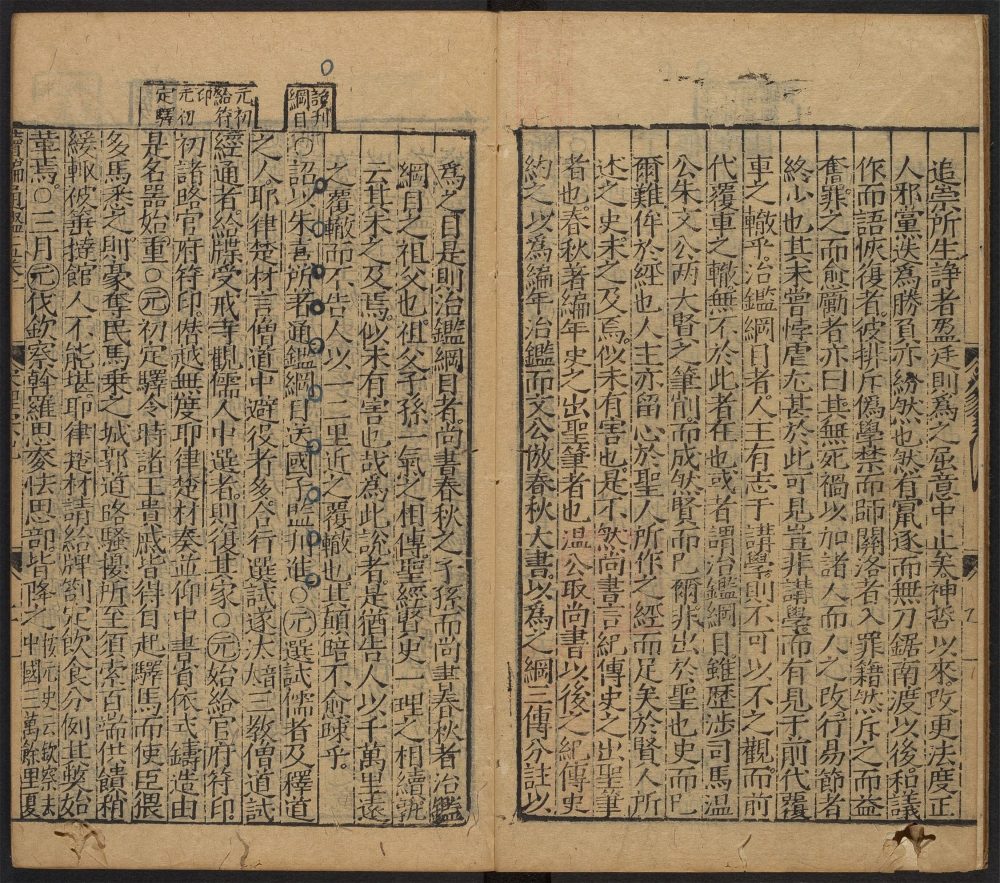 追崇所生諍者盈廷則為之屈意中止矣神哲以來改更法度正
人邪黨迭為勝負亦紛然也然有竄逐而無刀鋸南渡以後和議
作而語恢復者彼排斥偽學禁而師關洛者入罪籍然斥之而益
奮罪之而愈勵者亦曰其無死禍以加諸人而人之改行易節者
終少也其未曾悖虐尤甚於此可見豈非講學而有見于前代覆
車之轍乎治鑑綱目者人主有志于講學則不可以不之觀而前
代覆車之轍無不於此者在也或者謂治鑑綱目雖歷涉司馬溫
公朱文公两大賢之筆削而成然賢而已爾非出於聖也史而已
爾難侔於經也人主亦留心於聖人所作之經而足矣於賢人所
述之史未之及焉似未有害也是不然尚書言紀傳史之出聖筆
者也春秋著編年史之出聖筆者也溫公取尚書以後之紀傳史
約之以為編年治鑑而文公倣春秋大書以為之綱三傳分註以
為之目是則治鑑綱目者尚書春秋之子孫而尚書春秋者治鑑
綱目之祖父也祖父子孫一氣之相傳聖經賢史一理之相續說
云其未之及焉似未有害也哉為此說者是猶告人以千萬里遠
之覆轍而不告人以一二里近之覆轍也其顛踣不愈速乎
詮刋
綱目
○詔以朱熹所著通鑑綱目送國子監刋進○元選試儒者及釋道
之人耶律楚材言僧道中避役者多合行選試遂汰焙三教僧道試
元初
給符
印
元初
定驛
經通者給牒受戒寺觀儒人中選者則復其家○元始給官府符印
初諸路官府符印僭越無度耶律楚材奏並仰中書省依式鑄造由
是名器始重○元初定驛令時諸王貴戚皆得自起驛馬而使臣猥
多馬悉乏則豪奪民馬乗之城郭道路騷擾所至須索百端供饋稍
緩輒彼箠撻館人不能堪耶律楚材請給牌劄定飲食分例其弊始
革焉○三月元伐欽察斡羅思麥怯思部皆降之按元史云欽察去中國三萬餘里夏